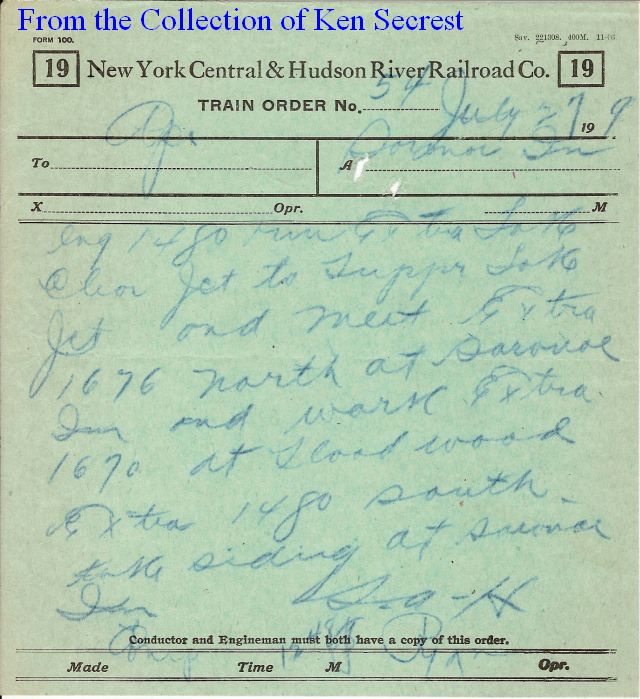 From the Collection of Ken Secrest
FORM 100. Sav. 221308. 400M. 11-06
19 New York Central & Hudson River Railroad Co. 19
TRAIN ORDER No. 54 July 27 19 9
To Opr. At Saranac Inn
X Opr. M
Eng 1480 run Extra Lake
Clear Jct to Tupper Lake
Jct and meet Extra
1676 North at Saranac
Inn and work Extra
1670 at Floodwood
Extra 1480 south
take siding at Saranac
Inn
Conductor and Engineman must both have a copy of this order.
Com Ryan
Made Time M Opr.